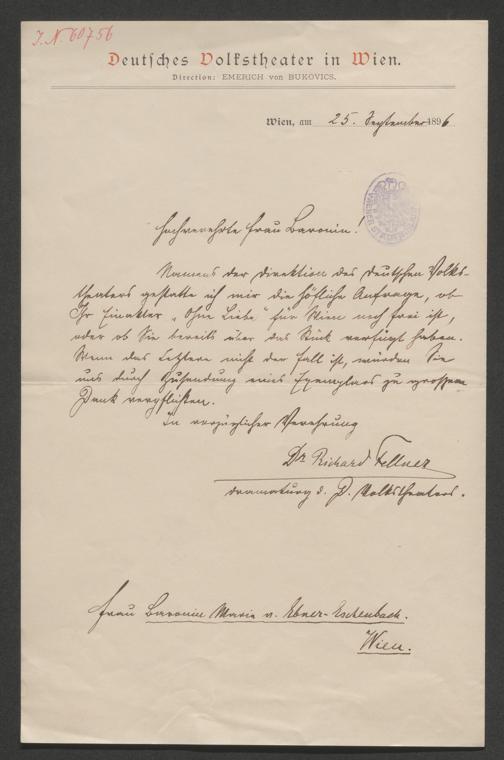 J.N. 60756
Deutsches Volkstheater in Wien.
Direction: EMERICH von BUKOVICS.
Wien, am 25. September 1896
Hochverehrte Frau Baronin!
Namens der Direktion des Deutschen Volks-
theaters gestatte ich mir die höfliche Anfrage, ob
Ihr Einakter „Ohne Liebe“ für Wien noch frei ist,
oder ob Sie bereits über das Stück verfügt haben.
Wenn das Letztere nicht der Fall ist, würden Sie
uns durch Zusendung eines Exemplars zu grossem
Dank verpflichten.
In vorzüglicher Verehrung
Dr Richard Fellner
Dramaturg d. D. Volkstheaters.
Frau Baronin Marie v. Ebner-Eschenbach.
Wien.